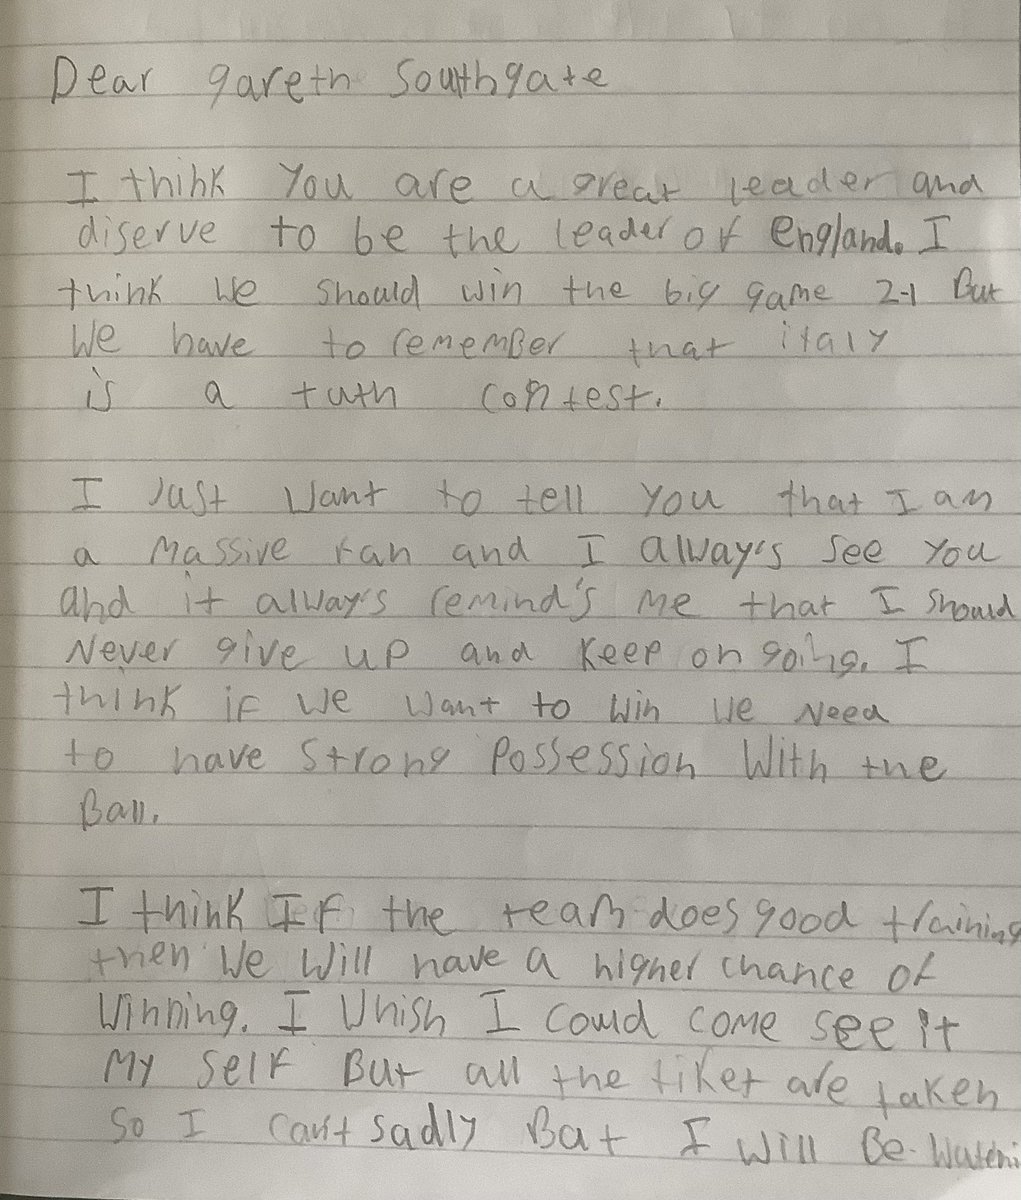 Dear gareth Southgate
I think You are a great leader and
diserve to be the leader of England. I
think we should win the big game 2-1 But
We have to remember that italy
is a tuth contest.
I Just Want to tell You that I am
a Massive fan and I always's see You
and it always's remind's Me that I should
Never give up and Keep on going. I
think if we want to win we Need
to have strong Possession With the
Ball.
I think If the team does good training
then We Will have a higher chance of
Winning. I Whish I could come see it
My self But all the tiket are taken
So I can't sadly But I Will Be